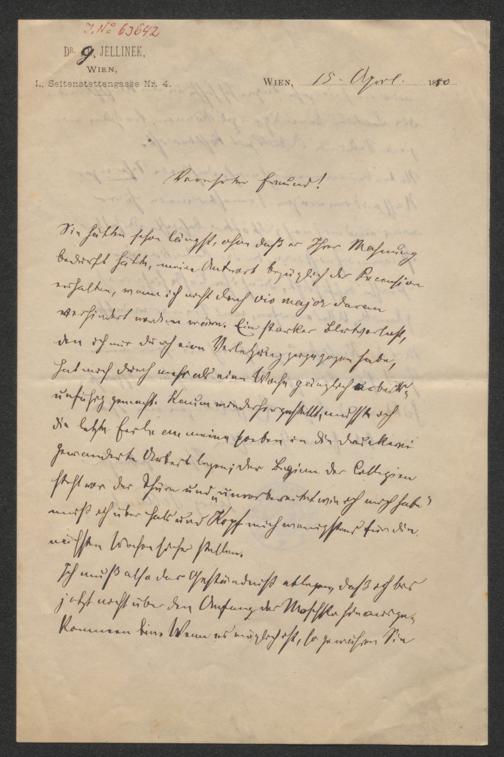 J. No 63642
DR. G. JELLINEK,
WIEN,
I., Seitenstettengasse Nr. 4.
WIEN, 15. April. 1880
Verehrter Freund!
Sie hätten schon längst, ohne daß es Ihrer Mahnung
bedurft hätte, meine Antwort bezüglich der Recension
erhalten, wenn ich nicht durch vis major daran
verhindert worden wäre. Ein starker Blutverlust,
den ich mir durch eine Verletzung zugezogen habe,
hat mich durch mehr als eine Woche gänzlich arbeits-
unfähig gemacht. Kaum wiederhergestellt, mußte ich
die letzte Feile an meine soeben in die Druckerei
gewanderte Arbeit legen; der Beginn der Collegien
steht vor der Thüre und, unvorbereitet wie ich mich habe
muß ich über Hals und Kopf mich wenigstens für die
nächsten Wochen sicher stellen.
Ich muß also das Geständniß ablegen, daß ich bis
jetzt nicht über den Anfang des hinausge-
kommen bin. Wenn es möglich ist, so gewähren Sie